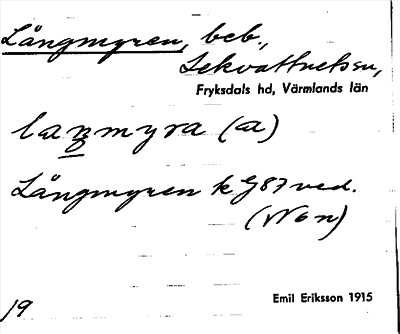 Långmyren, beb.,
Lekvattnets sn,
Fryksdals hd, Värmlands län
laŋmyra (a)
Långmyren k G87 ved.
(Won)
Emil Eriksson 1915
19